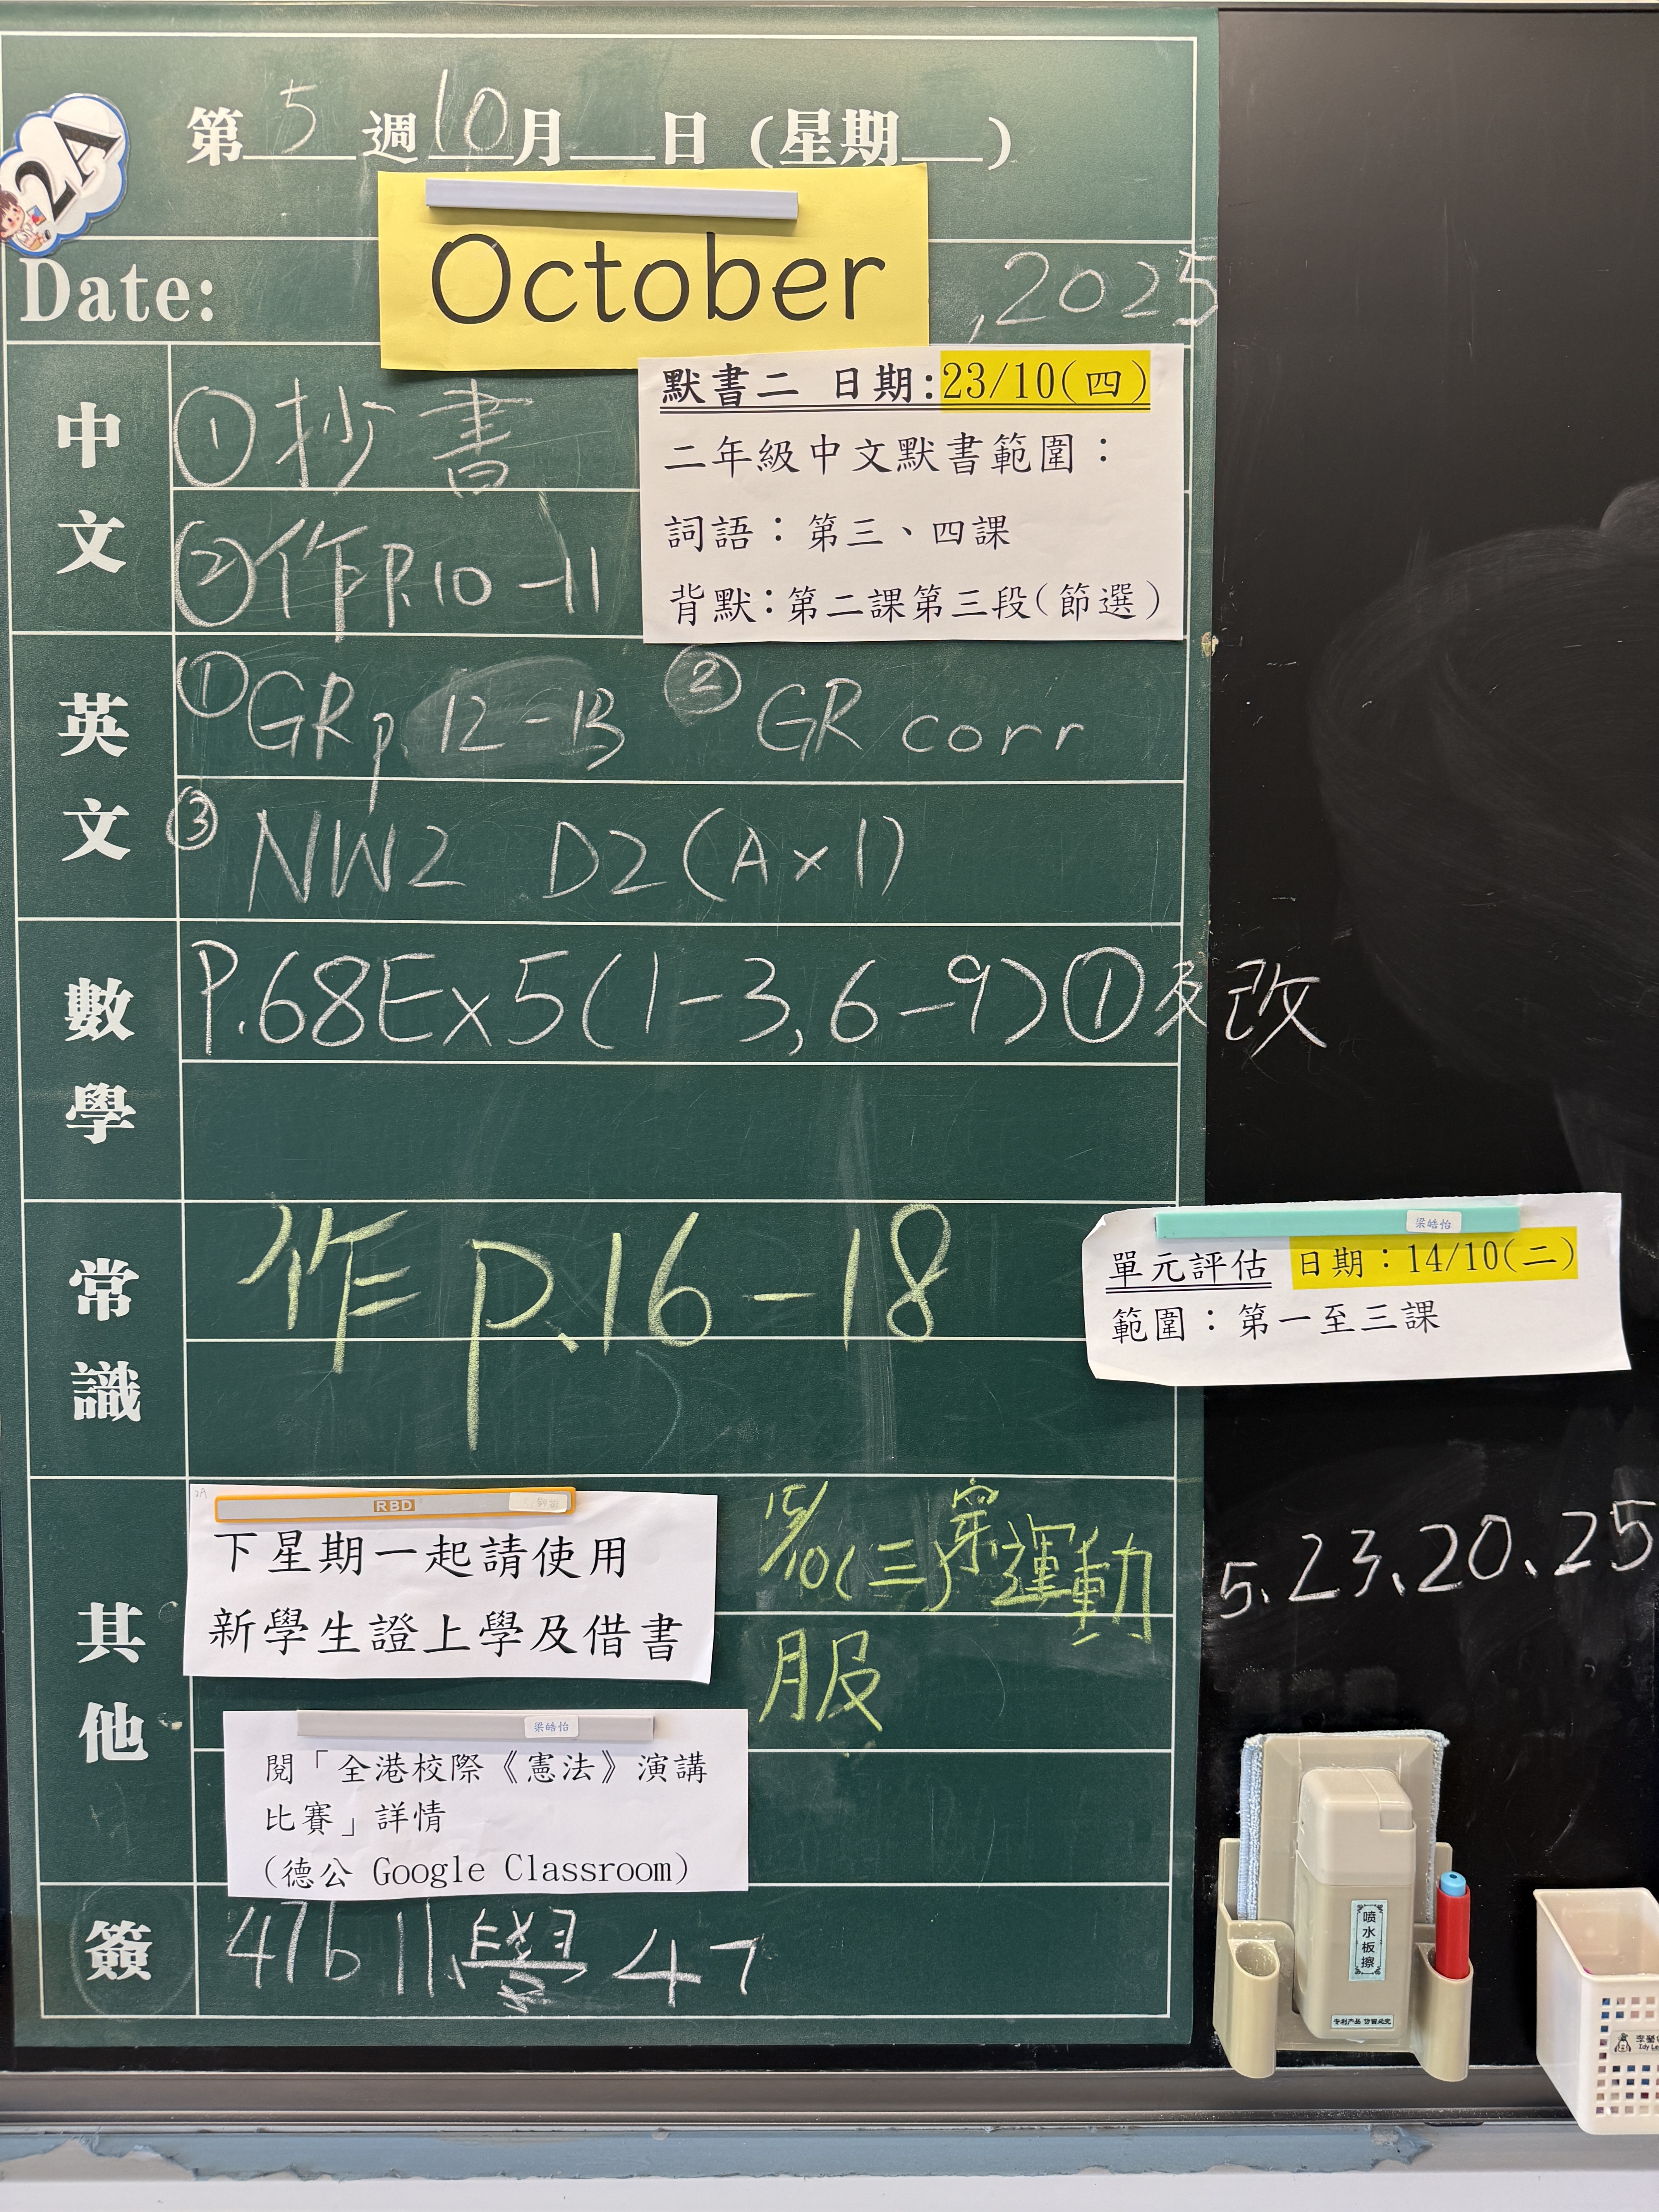 2A
第5週10月__日(星期__)
Date: October ,2025
中文
①抄書
②作P.10-11
默書二 日期:23/10(四)
二年級中文默書範圍:
詞語:第三、四課
背默:第二課第三段(節選)
英文
①GR p.12-13 ②GR corr
③NW2 D2(A×1)
數學
P.68Ex5(1-3,6-9)①及改
常識
作 p.16-18
梁皓怡
單元評估 日期:14/10(二)
範圍:第一至三課
其他
2A
RBD
下星期一起請使用
新學生證上學及借書
15/10(三)穿運動
服
5、23、20、25
梁皓怡
閱「全港校際《憲法》演講
比賽」詳情
(德公 Google Classroom)
簽
47b 11.學 47
喷水板擦
专利产品 仿冒必究